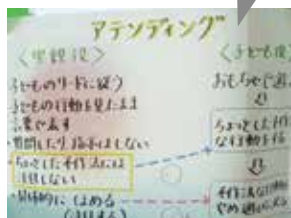 アテンディング
〈実親役〉
子どものリードに従う
子どもの行動を見たまま
言葉で表す
・質問したり、指示はしない
・ちょっとした不作法には
注目しない
・具体的にほめる
〈子ども役〉
おもちゃで遊
ちょっとした不作
な行動をする
不作法な行動
やめ遊